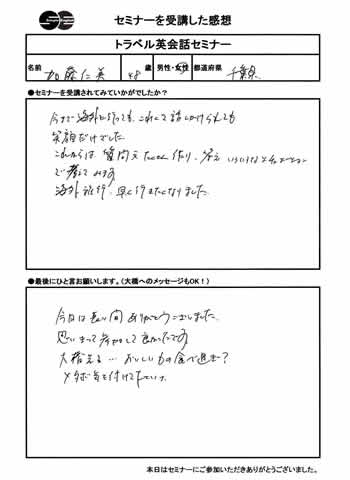 セミナーを受講した感想
トラベル英会話セミナー
名前 加藤仁美 48 歳 男性・女性 都道府県 千葉県
●セミナーを受講されてみていかがでしたか?
今まで海外に行っても、これって話しかけられても
笑顔だけでした
これからは、質問文たくさん作り、答え いろいろなシチュエーション
で考えてみます
海外旅行、早く行きたくなりました。
●最後にひと言お願いします。(大橋へのメッセージもOK!)
今日は長い間ありがとうございました。
思いきって参加して良かったです
大橋さん… おいしいもの食べ過ぎ?
メタボ気を付けて下さい。
本日はセミナーにご参加いただきありがとうございました。